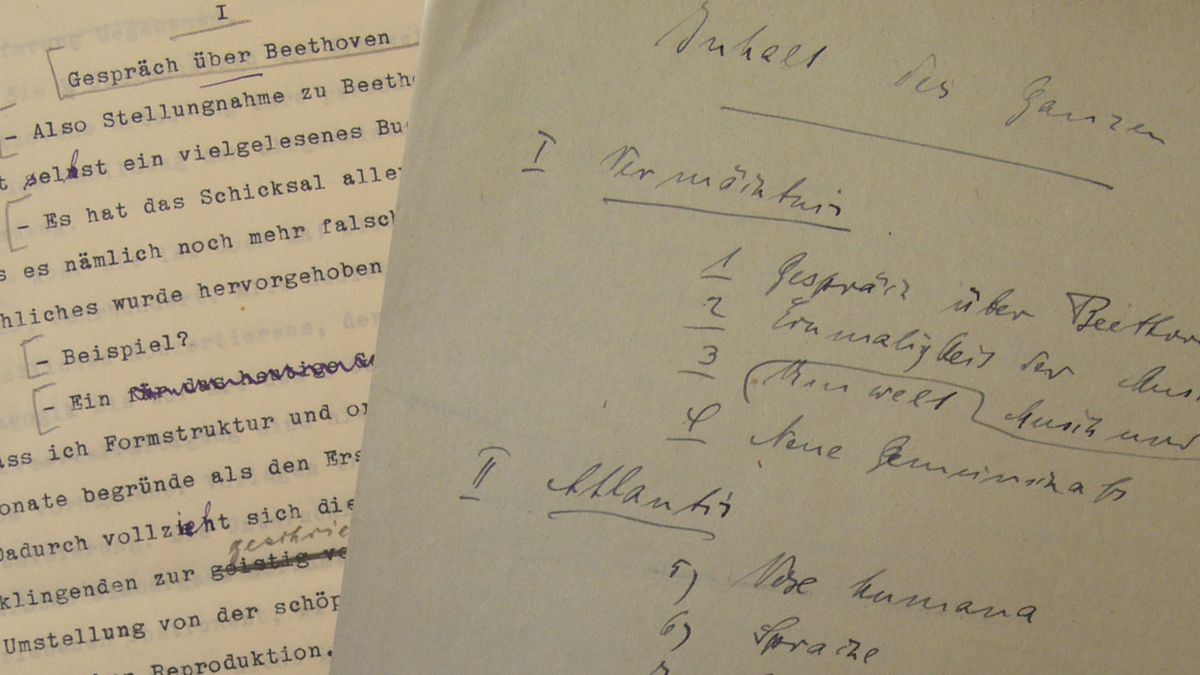 I
Gespräch über Beethoven
- Also Stellungnahme zu Beeth
t selbst ein vielgelesenes Bu
- Es hat das Schicksal alle
s es nämlich noch mehr falsch
hliches wurde hervorgehoben
- Beispiel?
- Ein für das heutige
ass ich Formstruktur und or
onate begründe als den Ers
Dadurch vollzieht sich die
geschrie
klingenden zur geistig ve
Umstellung von der schöp
Reproduktion.
Inhalt des Ganzen
I Vermächtnis
1 Gespräch über Beethov
2 Einmaligkeit der Mus
3 Musik und
4 Neue Gemeinschaft
II Atlantis
5) Vox humana
6) Sprache